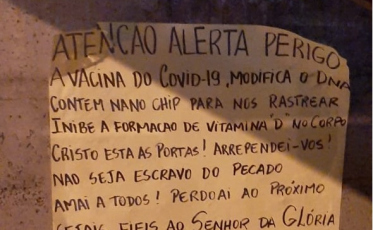 ATENCAO ALERTA PERIGO
A VACINA DO COVID-19, MODIFICA O DNA
CONTEM NANO CHIP PARA NOS RASTREAR
INIBE A FORMACAO DE VITAMINA "D" NO CORPO
CRISTO ESTA AS PORTAS! ARREPENDEI-VOS!
NAO SEJA ESCRAVO DO PECADO
AMAI A TODOS! PERDOAI AO PRÓXIMO
FIEIS AO SENHOR DA GLÓRIA